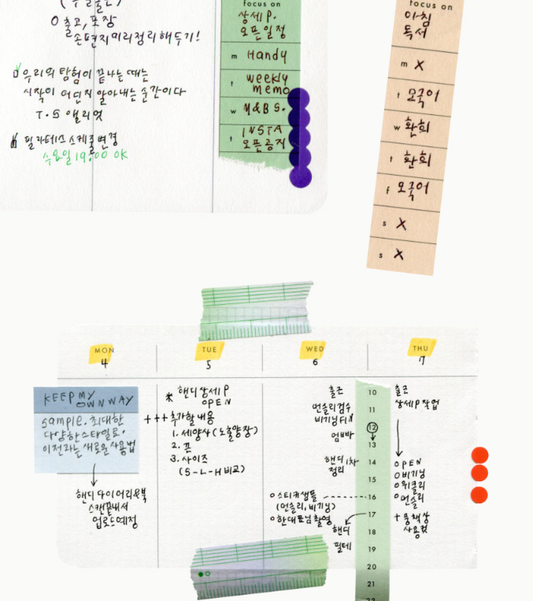 ㅇ출고, 포장
손편지 미리 정리해두기!
우리의 탐험이 끝나는 때는
시작이 어딘지 알아내는 순간이다
T.S 엘리엇
필라테스 스케줄 변경
수요일 19:00 OK
focus on
상세P.
오픈일정
m Handy
t weekly
memo
w M&B S.
t INSTA
오픈공지
focus on
아침
독서
m X
t 모국어
w 환희
t 환희
f 모국어
s X
s X
MON
4
TUE
5
WED
6
THU
7
KEEP MY
OWN WAY
sample. 최대한
다양한 스타일로.
이전과는 새로운 사용법
핸디 다이어리 &북
스캔 끝내서
업로드 예정
* 핸디 상세P
OPEN
+++ 추가할 내용
1. 세양사 (노출양장)
2. 끈
3. 사이즈
(S-L-H 비교)
출근
먼슬리 검수
비기닝
엄빠
핸디 1차
정리
ㅇ스티커 샘플
(먼슬리, 비기닝)
ㅇ한대표님 촬영
핸디
필테
10
11
12
13
14
15
16
17
18
19
20
21
22
출근
상세P 작업
ㅇOPEN
ㅇ비기닝
ㅇ위클리
ㅇ먼슬리
+ 동책상
사용컷